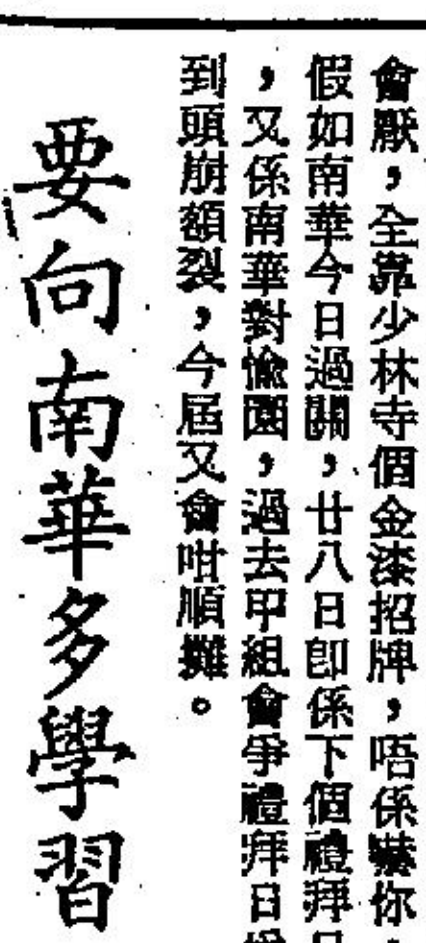 會厭，全靠少林寺個金漆招牌，唔係嚇你，
假如南華今日過關，廿八日即係下個禮拜日
，又係南華對愉園，過去甲組會爭禮拜日
到頭崩額裂，今屆又會咁順攤。
要向南華多學習